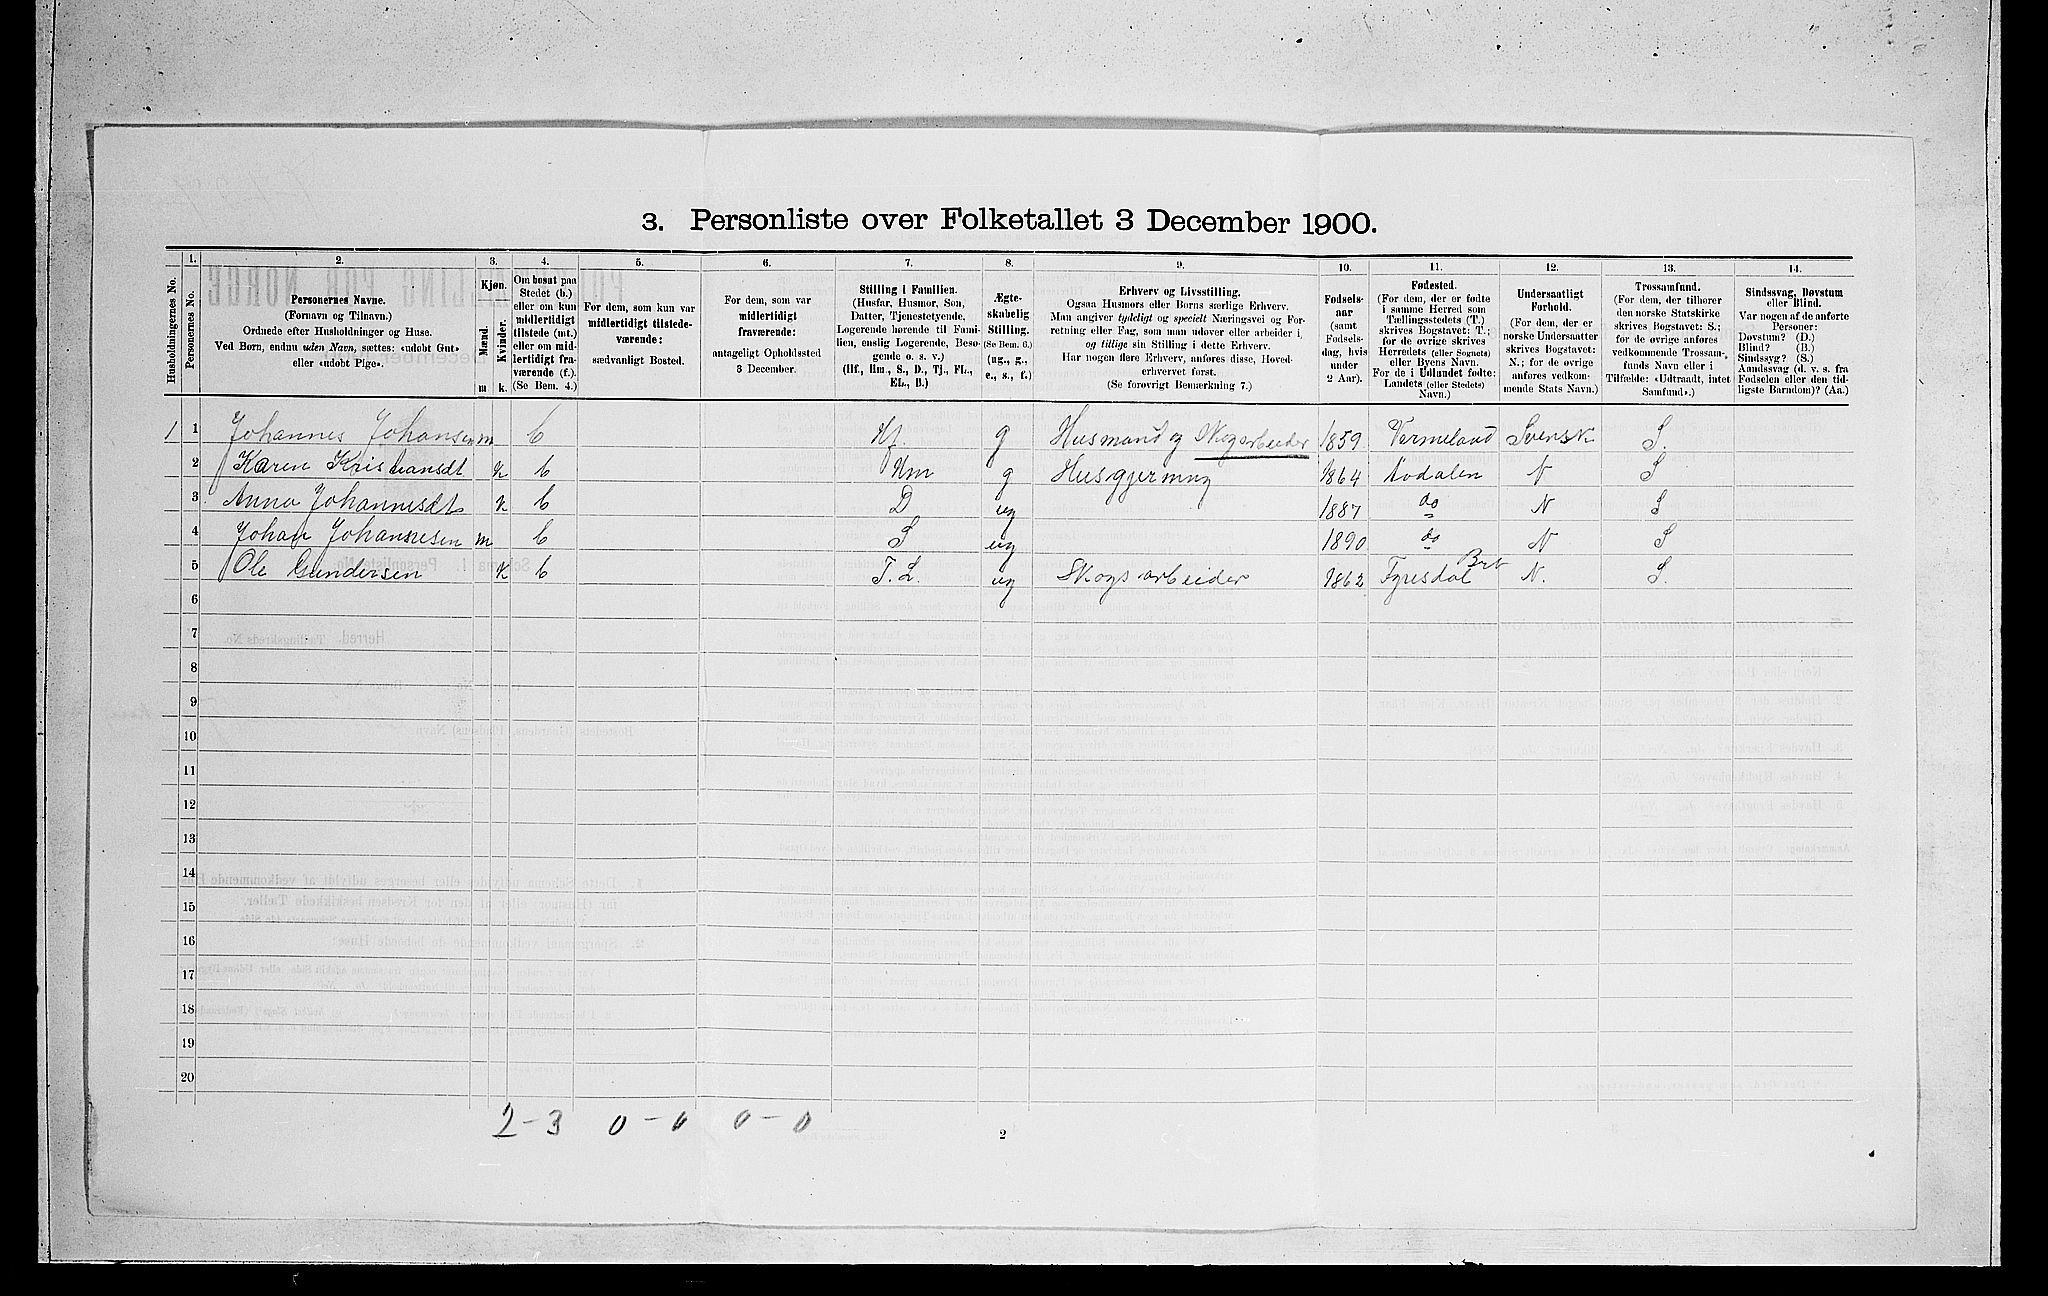 3. Personliste over Folketallet 3 December 1900.
Husholdningernes No.
1.
Personernes No.
2.
Personernes Navne.
(Fornavn og Tilnavn.)
Ordnede efter Husholdninger og Huse.
Ved Børn, endnu uden Navn, sættes: «udøbt Gut»
eller «udøbt Pige».
3.
Kjøn.
Mænd.
Kvinder.
m k.
4.
Om bosat paa
Stedet (b.)
eller om kun
midlertidigt
tilstede (mt.)
eller om mid-
lertidigt fra-
værende (f.).
(Se Bem. 4.)
5.
For dem, som kun var
midlertidigt tilstede-
værende:
sædvanligt Bosted.
6.
For dem, som var
midlertidigt
fraværende:
antageligt Opholdssted
3 December.
7.
Stilling i Familien.
(Husfar, Husmor, Søn,
Datter, Tjenestetyende,
Logerende hørende til Fami-
lien, enslig Logerende, Besø-
gende o. s. v.)
(Hf., Hm., S., D., Tj., FL.,
EL., B.)
8.
Ægte-
skabelig
Stilling.
(Se Bem. 6.)
(ug., g.,
e., s., f.)
9.
Erhverv og Livsstilling.
Ogsaa Husmors eller Børns særlige Erhverv.
Man angiver tydeligt og specielt Næringsvei og For-
retning eller Fag, som man udøver eller arbeider i,
og tillige sin Stilling i dette Erhverv.
Har nogen flere Erhverv, anføres disse, Hoved-
erhvervet først.
(Se forøvrigt Bemærkning 7.)
10.
Fødsels-
aar
(samt
Fødsels-
dag, hvis
under
2 Aar).
11.
Fødested.
(For dem, der er fødte
i samme Herred som
Tællingsstedets (T.)
skrives Bogstavet: T.;
for de øvrige skrives
Herredets (eller Sognets)
eller Byens Navn.
For de i Udlandet fødte:
Landets (eller Stedets)
Navn.)
12.
Undersaatligt
Forhold.
(For dem, der er
norske Undersaatter
skrives Bogstavet:
N.; for de øvrige
anføres vedkom-
mende Stats Navn.)
13.
Trossamfund.
(For dem, der tilhører
den norske Statskirke
skrives Bogstavet: S.;
for de øvrige anføres
vedkommende Trossam-
funds Navn eller i
Tilfælde: «Udtraadt, intet
Samfund».)
14.
Sindssvag, Døvstum
eller Blind.
Var nogen af de anførte
Personer:
Døvstum? (D.)
Blind? (B.)
Sindssyg? (S.)
Aandssvag (d. v. s. fra
Fødselen eller den tid-
ligste Barndom)? (Aa.)
1 1 Johannes Johansen m b Hf. g Husmand og Skogarbeider 1859 Vermeland Svensk S.
2 Karen Kristiansdt k b Hm g Husgjerning 1864 Aadalen N S
3 Anna Johannesdt k b D ug 1887 do N S
4 Johan Johannesen m b S ug 1890 do N S
5 Ole Gundersen k b T. L. ug Skogsarbeider 1862 Fyresdal Brb N. S.
6
7
8
9
10
11
12
13
14
15
16
17
18
19
20
2-3 0-0 0-0
2